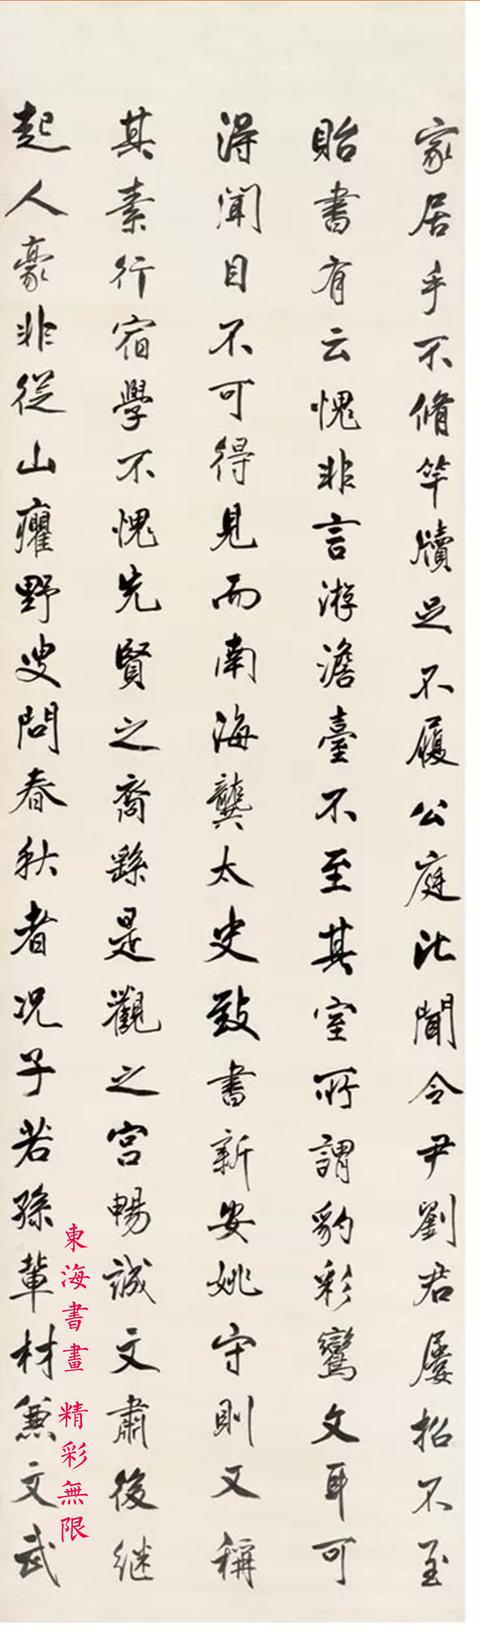 家居手不脩竿牘足不履公庭比聞令尹劉君屢招不至
貽書有云愧非言游澹臺不至其室所謂豹彩鸞文耳可
得聞目不可得見而南海龔太史致書新安姚守則又稱
其素行宿學不愧先賢之裔繇是觀之宫暢誠文肅後继
起人豪非從山癯野叟問春秋者況子若孫輩材兼文武
東海書畫 精彩無限